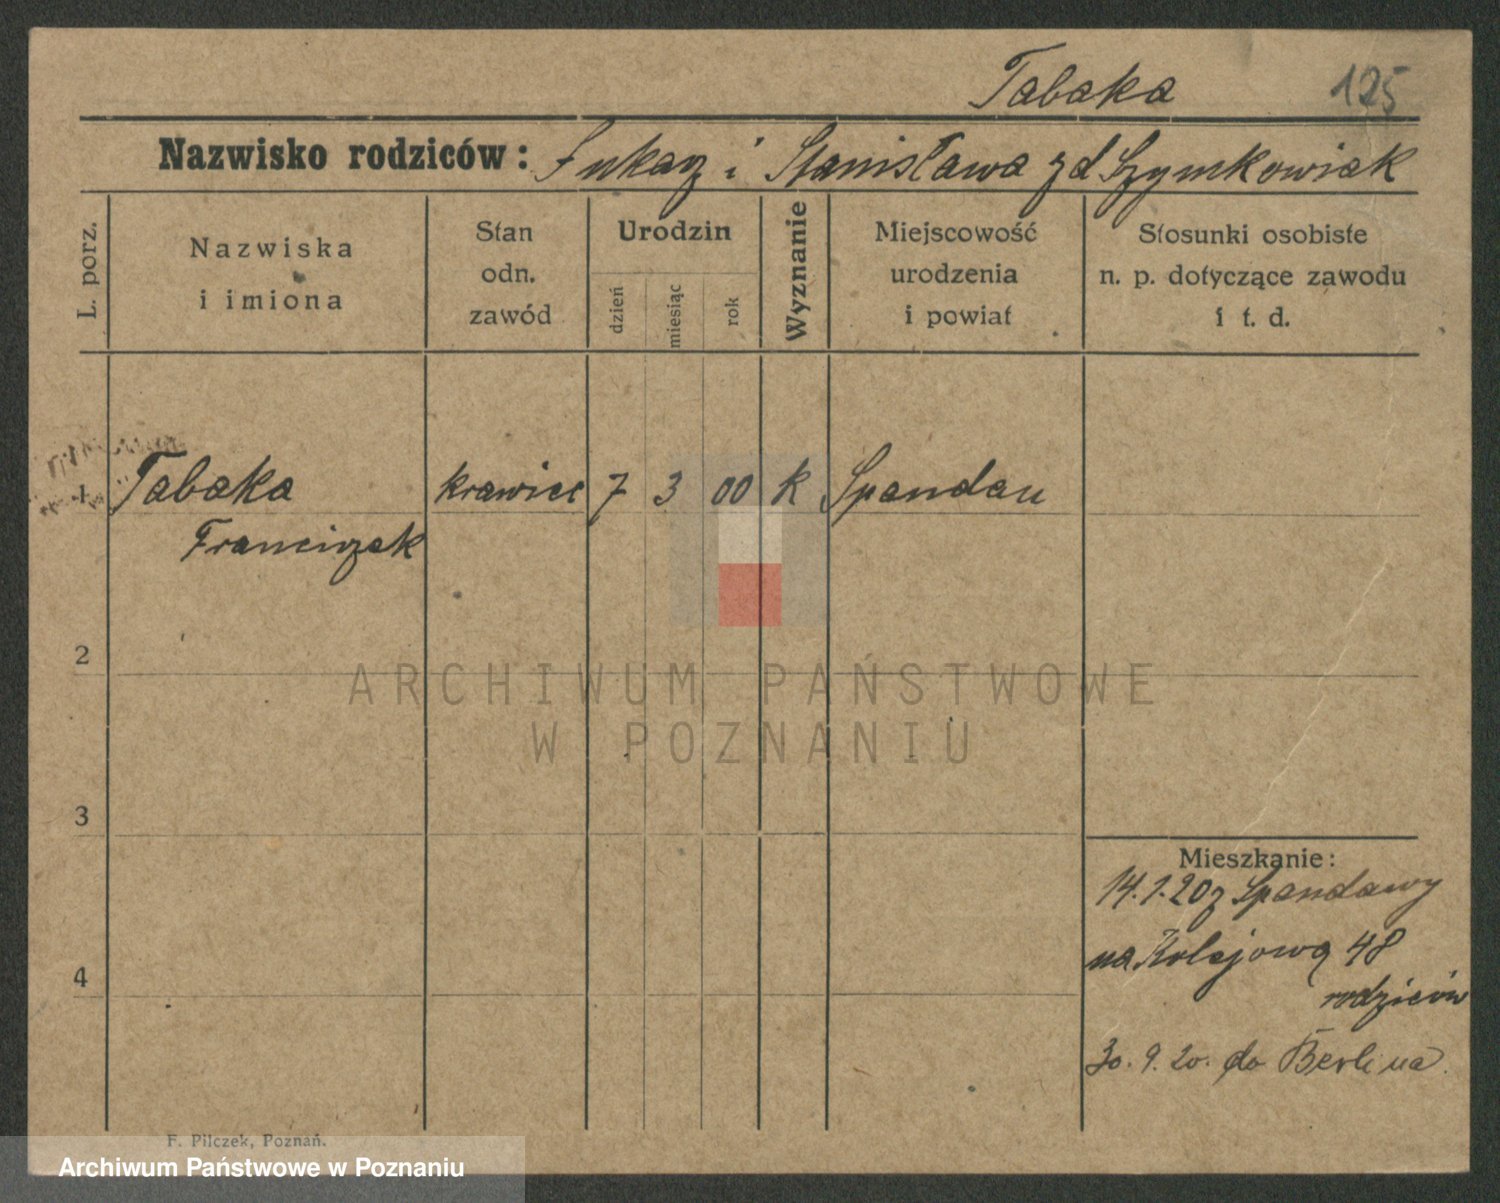 Tabaka 125
Nazwisko rodziców: Łukasz i Stanisława z d Szymkowiak
L. porz.
Nazwiska
i imiona
Stan
odn.
zawód
Urodzin
dzień
miesiąc
rok
Wyznanie
Miejscowość
urodzenia
i powiat
Stosunki osobiste
n. p. dotyczące zawodu
i t. d.
1 Tabaka krawiec 7 3 00 k Spandau
Franciszek
2
ARCHIWUM PAŃSTWOWE
W POZNANIU
3
Mieszkanie:
14.1.20 z Spandawy
na Kolejową 48
4
rodziców
30. 9. 20. do Berlina.
F. Pilczek, Poznań.
Archiwum Państwowe w Poznaniu